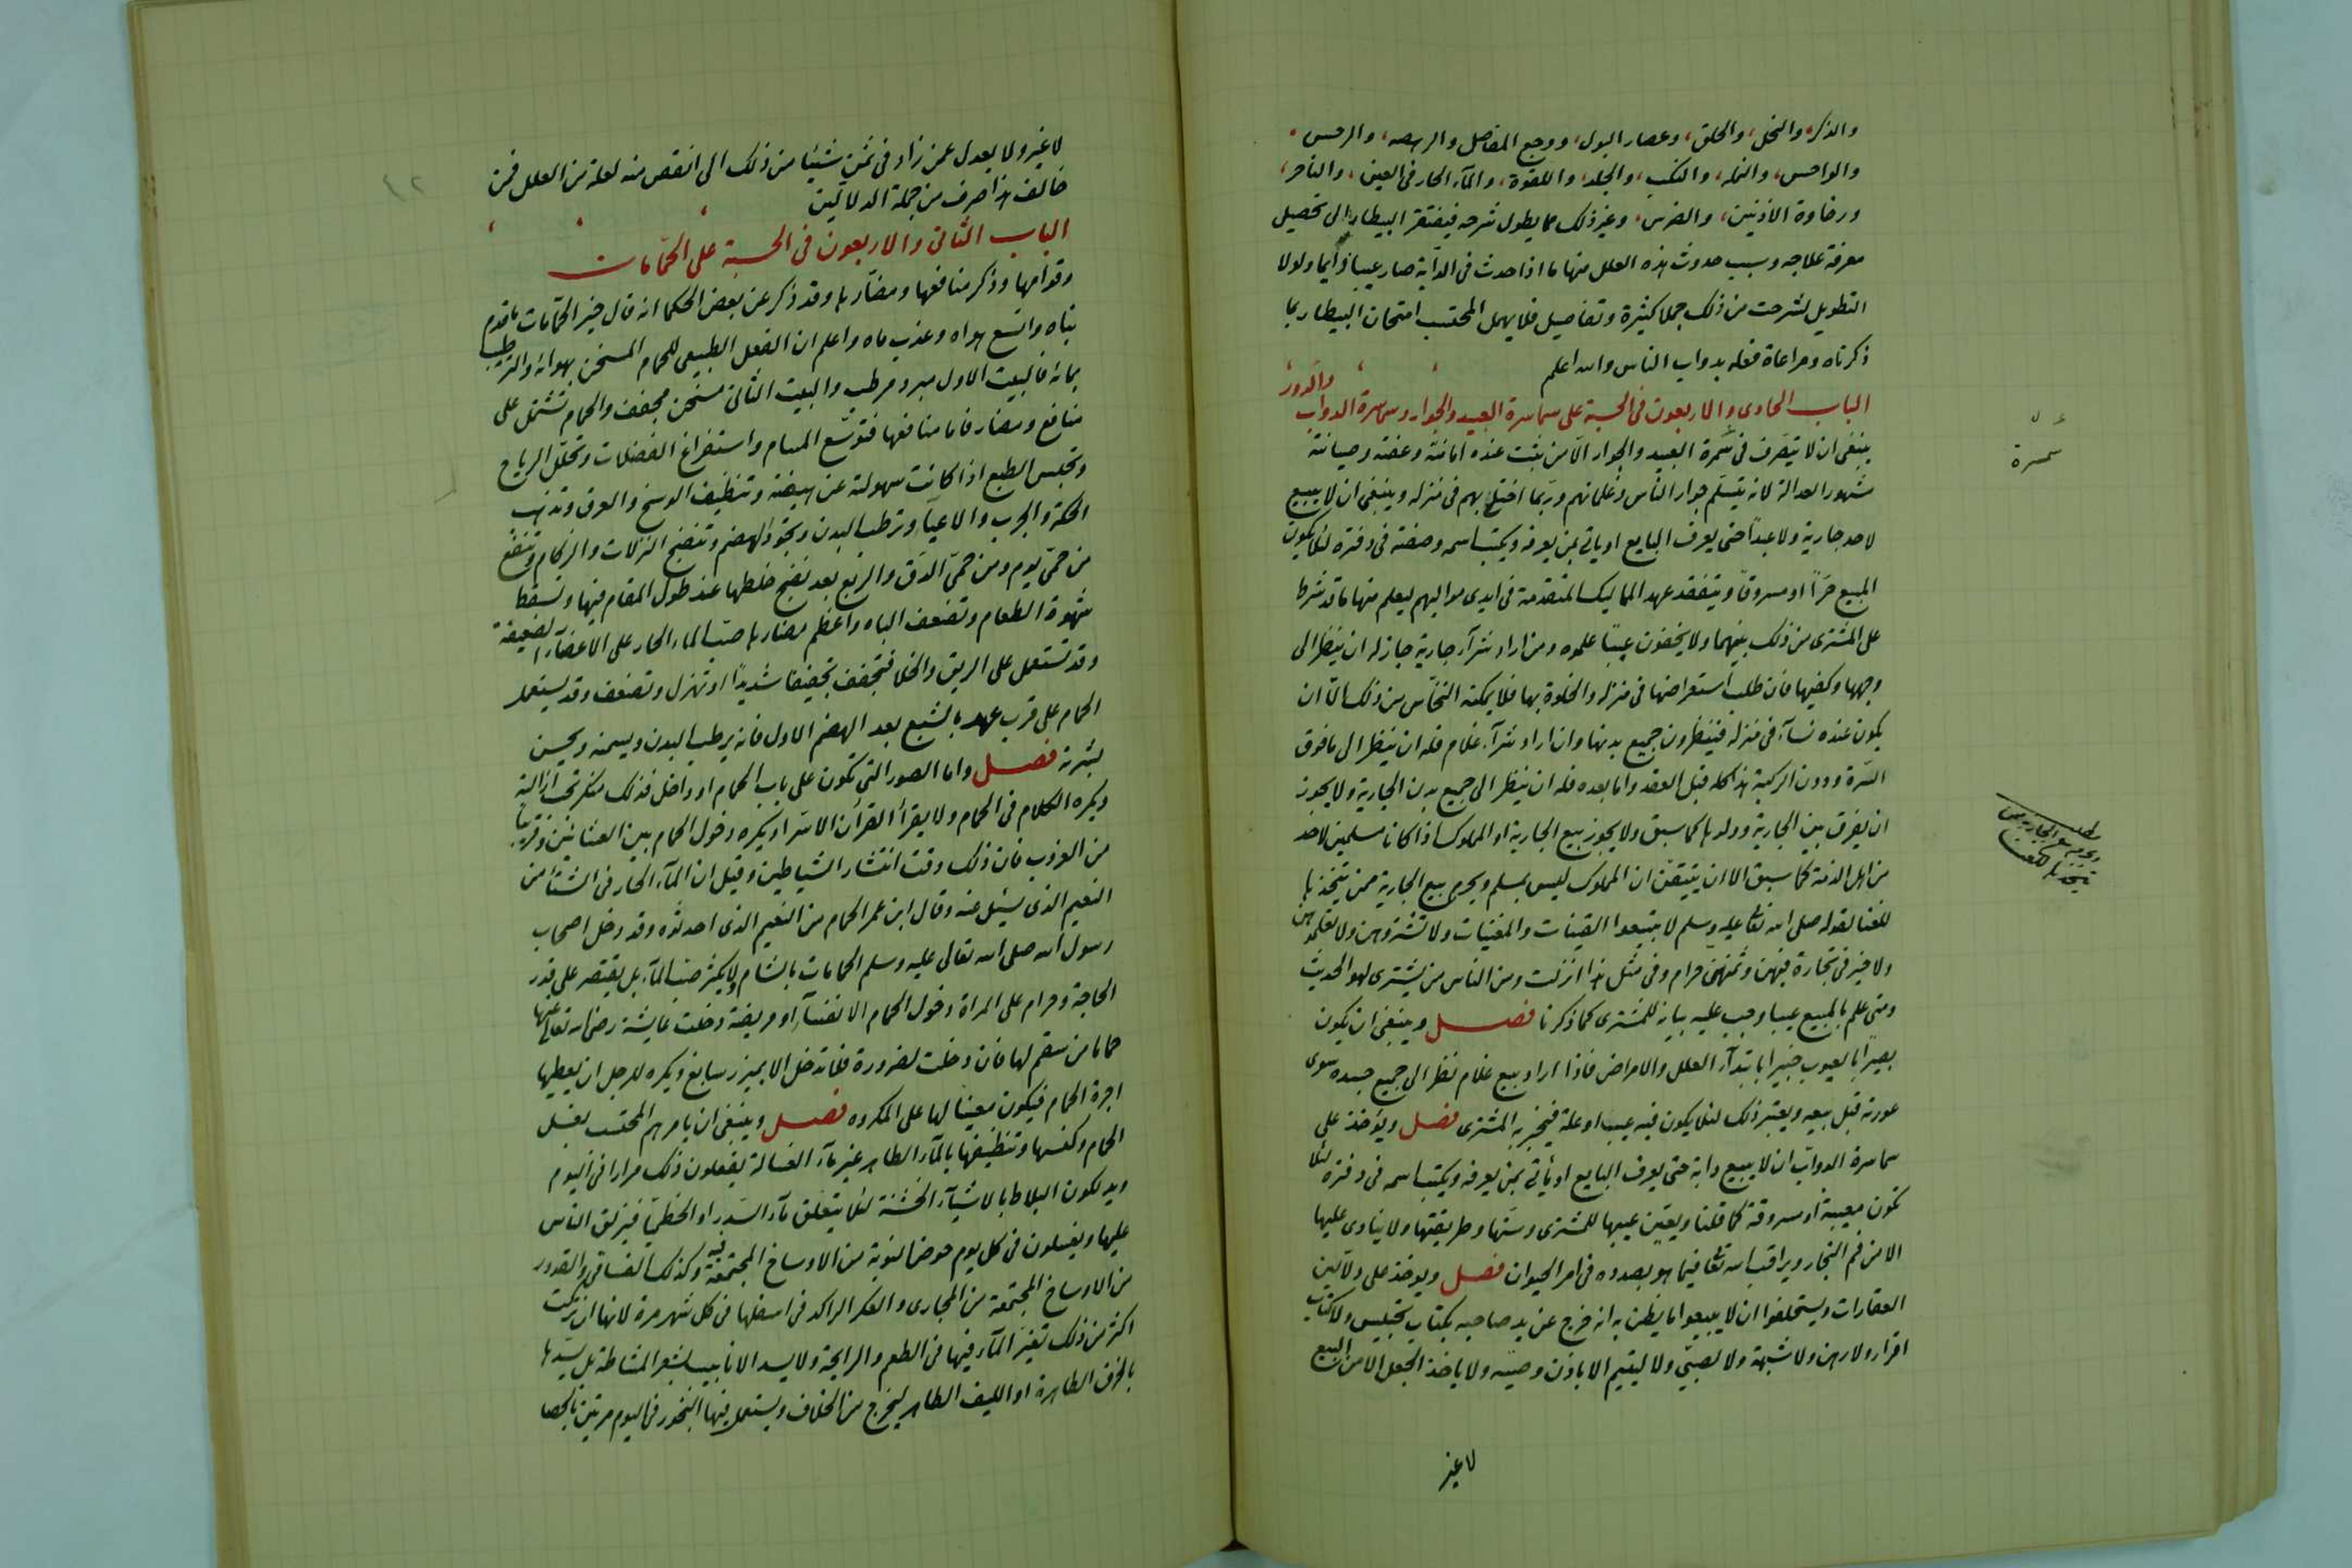 والذكره والنخل، والحلق، وعصار البول، ووجع المفاصل والرهصه، والرحس
والواحس، والنمله، والنكب، والجلد، واللقوة، والمآء الحار فى العين، والناحر،
ورخاوة الاذنين، والضرس، وغير ذلك مما يطول شرحه فيفتقر البيطار الى تحصيل
معرفة علاجه وسبب حدوث هذه العلل منها ما اذا حدث فى الدابة صار عيبا دايما ولولا
التطويل لشرحت من ذلك جملا كثيرة وتفاصيل فلا يهمل المحتسب امتحان البيطار بما
ذكرناه ومراعاة فعله بدواب الناس والله اعلم
الباب الحادى والاربعون فى الحسبة على سماسرة العبيد والجوار وسماسرة الدواب والدور
ينبغى ان لا يتصرف فى سمرة العبيد والجوار الا من ثبت عنده امانته وعفته وصيانته
مشهور العدالة لانه يتسلم جوار الناس وغلمانهم وربما اختلى بهم فى منزله وينبغى ان لا يبيع
لاحد جارية ولا عبدا حتى يعرف البايع او ياتى بمن يعرفه ويكتب اسمه وصفته فى دفتره لئلا يكون
المبيع حرا او مسروقا ويتفقد عهد المماليك المتقدمة فى ايدى مواليهم ليعلم منها ما قد شرط
على المشترى من ذلك بينهما ولا يخفون عيبا علموه ومن اراد شرآء جارية جاز له ان ينظر الى
وجهها وكفيها فان طلب استعراضها فى منزله والخلوة بها فلا يمكنه النخاس من ذلك الا ان
يكون عنده نسآء فى منزله فينظرون جميع بدنها وان اراد شرآء غلام فله ان ينظر الى ما فوق
السرة ودون الركبة هذا كله قبل العقد واما بعده فله ان ينظر الى جميع بدن الجارية ولا يجوز
ان يفرق بين الجارية وولدها كما سبق ولا يجوز بيع الجارية او المملوك اذا كانا مسلمين لاحد
من اهل الذمة كما سبق الا ان يتيقن ان المملوك ليس بمسلم ويحرم بيع الجارية ممن يتخذها
للغنا لقوله صلى الله تعالى عليه وسلم لا تبيعوا القينات والمغنيات ولا تشتروهن ولا تعلموهن
ولا خير فى تجارة فيهن وثمنهن حرام وفى مثل هذا انزلت ومن الناس من يشترى لهو الحديث
ومتى علم بالمبيع عيبا وجب عليه بيانه للمشترى كما ذكرنا فصل وينبغى ان يكون
بصيرا بالعيوب خبيرا بابتدآء العلل والامراض فاذا اراد بيع غلام نظر الى جميع جسده سوى
عورته قبل بيعه ويعتبر ذلك لئلا يكون فيه عيب او علة فيخبر به المشترى فصل ويؤخذ على
سماسرة الدواب ان لا يبيع دابة حتى يعرف البايع او يأتى بمن يعرفه ويكتب اسمه فى دفتره لئلا
تكون معيبة او مسروقة كما قلنا ويعين عيبها للمشترى وسنها وطريقتها ولا ينادى عليها
الا من فم التجار ويراقب الله تعالى فيما هو بصدده فى امر الحيوان فصل ويوخذ على دلالين
العقارات ويستحلفوا ان لا يبيعوا ما يظن به انه خرج عن يد صاحبه بكتاب تحبيس ولا كتاب
اقرار ولا رهن ولا شبهة ولا لصبى ولا ليتيم الا باذن وصيه ولا ياخذ الجعل الا من البيع
لا غير
سمسرة
مطلب
ويحرم بيع الجارية ممن
يتخذها للغنا
لا غير ولا يعدل عمن زاد فى ثمن شيئا من ذلك الى انقص منه لعلة من العلل فمن
خالف هذا صرف من جملة الدلالين
الباب الثانى والاربعون فى الحسبة على الحمامات
وقوامها وذكر منافعها ومضارها وقد ذكر عن بعض الحكما انه قال خير الحمامات ما قدم
بناه واتسع هواه وعذب ماه واعلم ان الفعل الطبيعى للحمام المسخن بهوائه والترطيب
بمائه فالبيت الاول مبرد مرطب والبيت الثانى مسخن مجفف والحمام تشتمل على
منافع ومضار فاما منافعها فتوسع المسام واستفراغ الفضلات وتحلل الرياح
وتحبس الطبع اذا كانت سهولته عن هيضة وتنظيف الوسخ والعرق وتذهب
الحكة والجرب والاعيآ وترطب البدن وتجود الهضم وتنضج النزلات والزكام وتنفع
من حمى يوم ومن حمى الدق والربع بعد نضج خلطها عند طول المقام فيها وتسقط
شهوة الطعام وتضعف الباه واعظم مضارها صب الماء الحار على الاعضآء الضعيفة
وقد تستعمل على الريق والخلا فتجفف تجفيفا شديدا او تهزل وتضعف وقد يستعمل
الحمام على قرب عهد بالشبع بعد الهضم الاول فانه يرطب البدن ويسمنه ويحسن
بشرته فصل واما الصور التى تكون على باب الحمام او داخل فذلك منكر تجب ازالته
ويكره الكلام فى الحمام ولا يقرأ القرأن الا سرا ويكره دخول الحمام بين العشائين وقريبا
من الغروب فان ذلك وقت انتشار الشياطين وقيل ان المآء الحار فى الشتا من
النعيم الذى يسئل عنه وقال ابن عمر الحمام من النعيم الذى احدثوه وقد دخل اصحاب
رسول الله صلى الله تعالى عليه وسلم الحمامات بالشام ولا يكثر صب المآء بل يقتصر على قدر
الحاجة وحرام على المراة دخول الحمام الا نفسآء او مريضة دخلت عايشة رضى الله تعالى عنها
حماما من سقم لها فان دخلت لضرورة فلا تدخل الا بميزر سابغ ويكره للرجل ان يعطيها
اجرة الحمام فيكون معينا لها على المكروه فصل وينبغى ان يامرهم المحتسب بغسل
الحمام وكنسها وتنظيفها بالمآء الطاهر غير مآء الغسالة يفعلون ذلك مرارا فى اليوم
ويدلكون البلاط بالاشيآء الخشنة لئلا يتعلق مآء السدر او الخطمى فيزلق الناس
عليها ويغسلون فى كل يوم حوض النوبة من الاوساخ المجتمعة فيه وكذلك الفساقى والقدور
من الاوساخ المجتمعة من المجارى والعكر الراكد فى اسفلها فى كل شهر مرة لانها ان تركت
اكثر من ذلك تغير المآء فيها فى الطعم والرايحة ولا يسد الانابيب بشعر المشاطة بل يسدها
بالخرق الطاهرة او الليف الطاهر ليخرج من الخلاف ويستعمل فيها البخور فى اليوم مرتين بالحصا